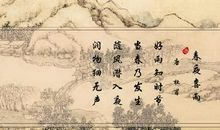 春夜喜雨
唐 杜甫
好雨知时节
当春乃发生
随风潜入夜
润物细无声